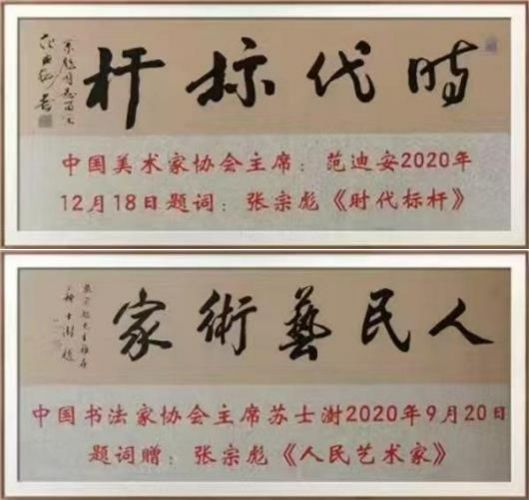 時代标杆
宗彪同志留念
范迪安书
中国美术家协会主席：范迪安2020年
12月18日题词：张宗彪《时代标杆》
人民藝術家
苏士澍题
中国书法家协会主席苏士澍2020年9月20日
题词赠：张宗彪《人民艺术家》